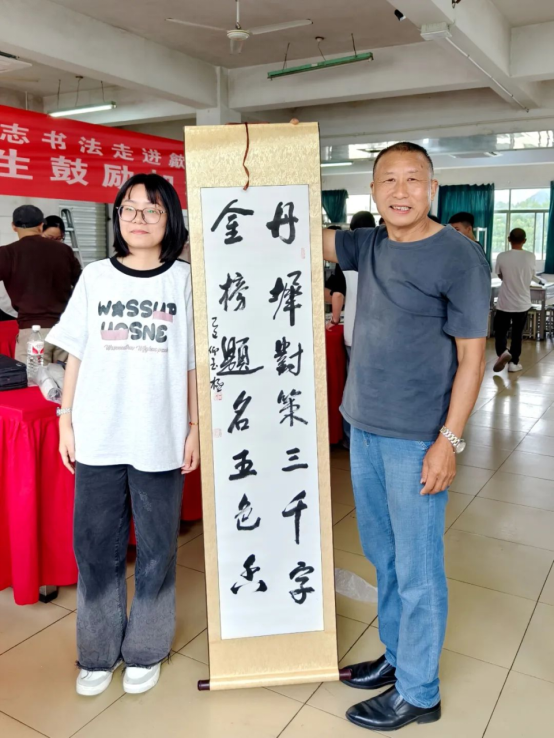 志书法走进
生鼓励
丹墀對策三千字
金榜題名五色春
乙巳